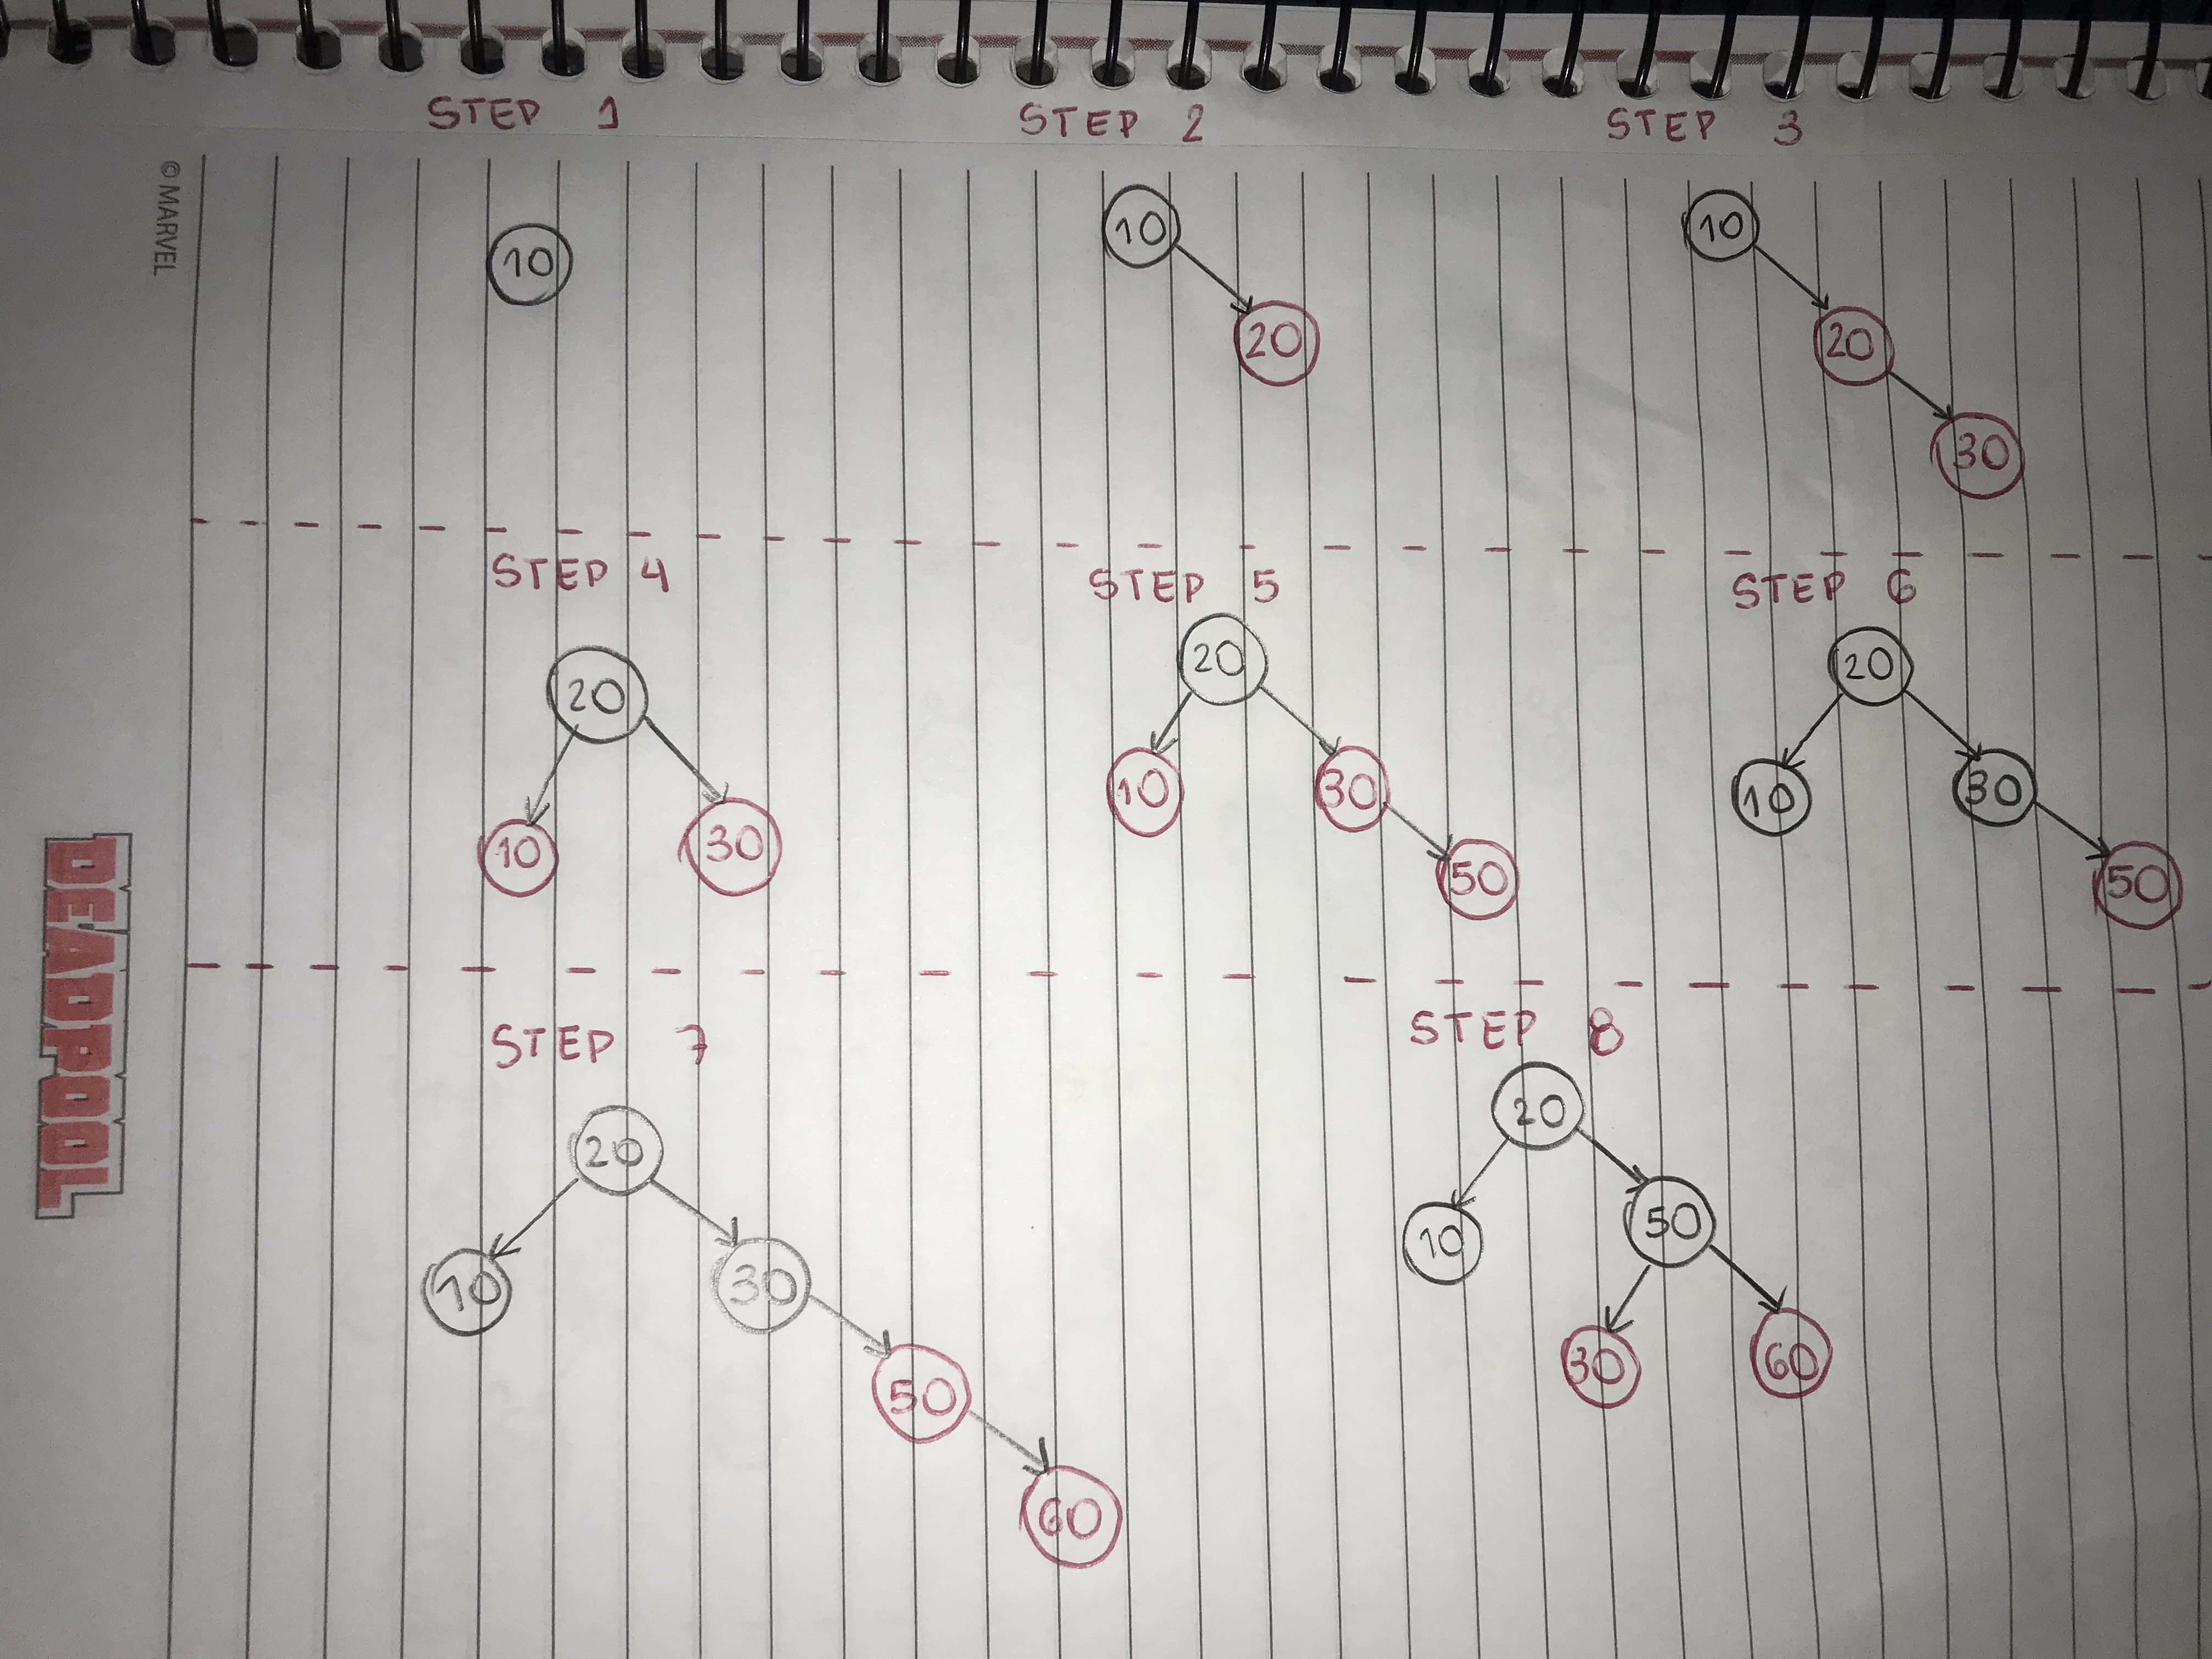 DEADPOOL
© MARVEL
STEP 1
10
STEP 2
10
20
STEP 3
10
20
30
STEP 4
20
10
30
STEP 5
20
10
30
50
STEP 6
20
10
30
50
STEP 7
20
10
30
50
60
STEP 8
20
10
50
30
60